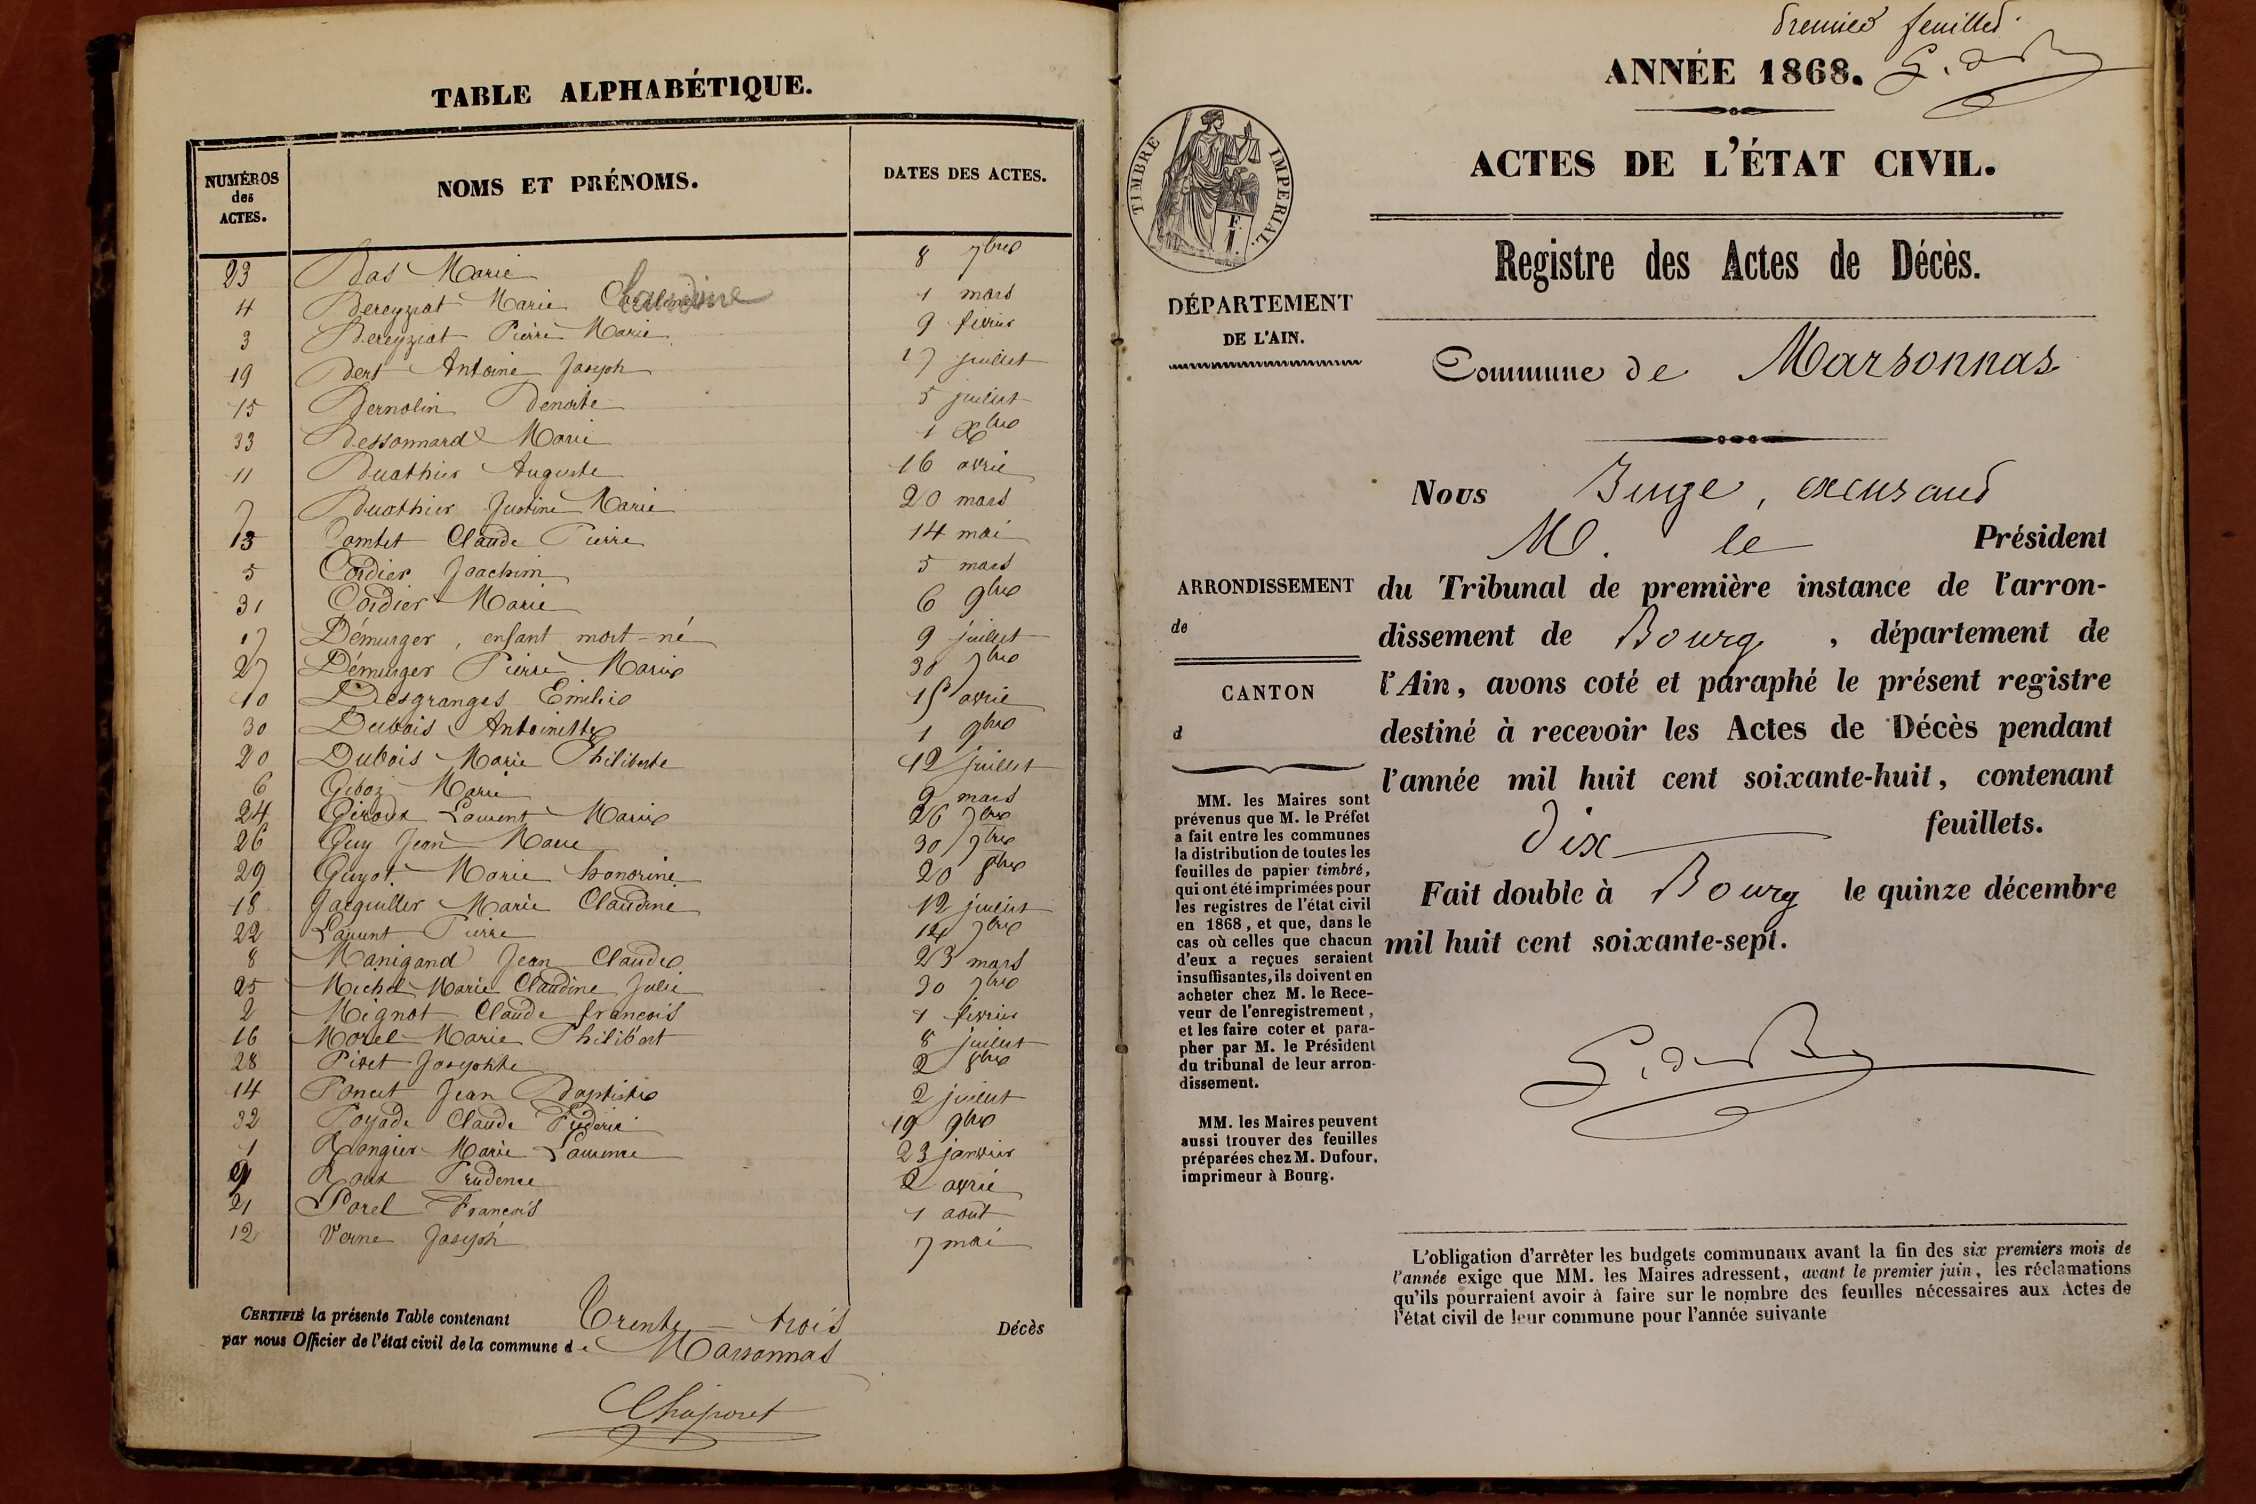 TABLE ALPHABÉTIQUE.
NUMÉROS des ACTES. NOMS ET PRÉNOMS. DATES DES ACTES.
23 Bas Marie 8 7bre
4 Bereyziat Marie Claudine 1 mars
3 Bereyziat Pierre Marie 9 février
19 Bert Antoine Joseph 17 juillet
15 Bernolin Benoite 5 juillet
33 Bessonnard Marie 1 Xbre
11 Buathier Auguste 16 avril
7 Buathier Justine Marie 20 mars
13 Comtet Claude Pierre 14 mai
5 Cordier Joachim 5 mars
31 Cordier Marie 6 9bre
17 Démurger, enfant mort-né 9 juillet
27 Démurger Pierre Marie 30 7bre
10 Desgranges Emilie 15 avril
30 Dubois Antoinette 1 9bre
20 Dubois Marie Philiberte 12 juillet
6 Giboz Marie 9 mars
24 Giroux Laurent Marie 26 7bre
26 Guy Jean Marie 30 7bre
29 Guyot Marie honorine 20 8bre
18 Jacquiller Marie Claudine 12 juillet
22 Laurent Pierre 14 7bre
8 Manigand Jean Claude 23 mars
25 Michel Marie Claudine Julie 30 7bre
2 Mignot Claude françois 1 février
16 Morel Marie Philibert 8 juillet
28 Pivet Josephte 2 8bre
14 Poncet Jean Baptiste 2 juillet
32 Poyade Claude Frédéric 19 9bre
1 Rongier Marie Laurence 23 janvier
9 Roux Prudence 2 avril
21 Sorel François 1 août
12 Verne Joseph 7 mai
CERTIFIÉ la présente Table contenant Trente-trois Décès
par nous Officier de l'état civil de la commune de Marsonnas
Premier feuillet.
ANNÉE 1868.
TIMBRE IMPÉRIAL.
ACTES DE L'ÉTAT CIVIL.
Registre des Actes de Décès.
DÉPARTEMENT
DE L'AIN.
Commune de Marsonnas
Nous Buge, excusant
M. le Président
ARRONDISSEMENT
de
du Tribunal de première instance de l'arron-
dissement de Bourg, département de
CANTON
d
l'Ain, avons coté et paraphé le présent registre
destiné à recevoir les Actes de Décès pendant
l'année mil huit cent soixante-huit, contenant
dix feuillets.
Fait double à Bourg le quinze décembre
mil huit cent soixante-sept.
MM. les Maires sont
prévenus que M. le Préfet
a fait entre les communes
la distribution de toutes les
feuilles de papier timbré,
qui ont été imprimées pour
les registres de l'état civil
en 1868, et que, dans le
cas où celles que chacun
d'eux a reçues seraient
insuffisantes, ils doivent en
acheter chez M. le Rece-
veur de l'enregistrement,
et les faire coter et para-
pher par M. le Président
du tribunal de leur arron-
dissement.
MM. les Maires peuvent
aussi trouver des feuilles
préparées chez M. Dufour,
imprimeur à Bourg.
L'obligation d'arrêter les budgets communaux avant la fin des six premiers mois de
l'année exige que MM. les Maires adressent, avant le premier juin, les réclamations
qu'ils pourraient avoir à faire sur le nombre des feuilles nécessaires aux Actes de
l'état civil de leur commune pour l'année suivante